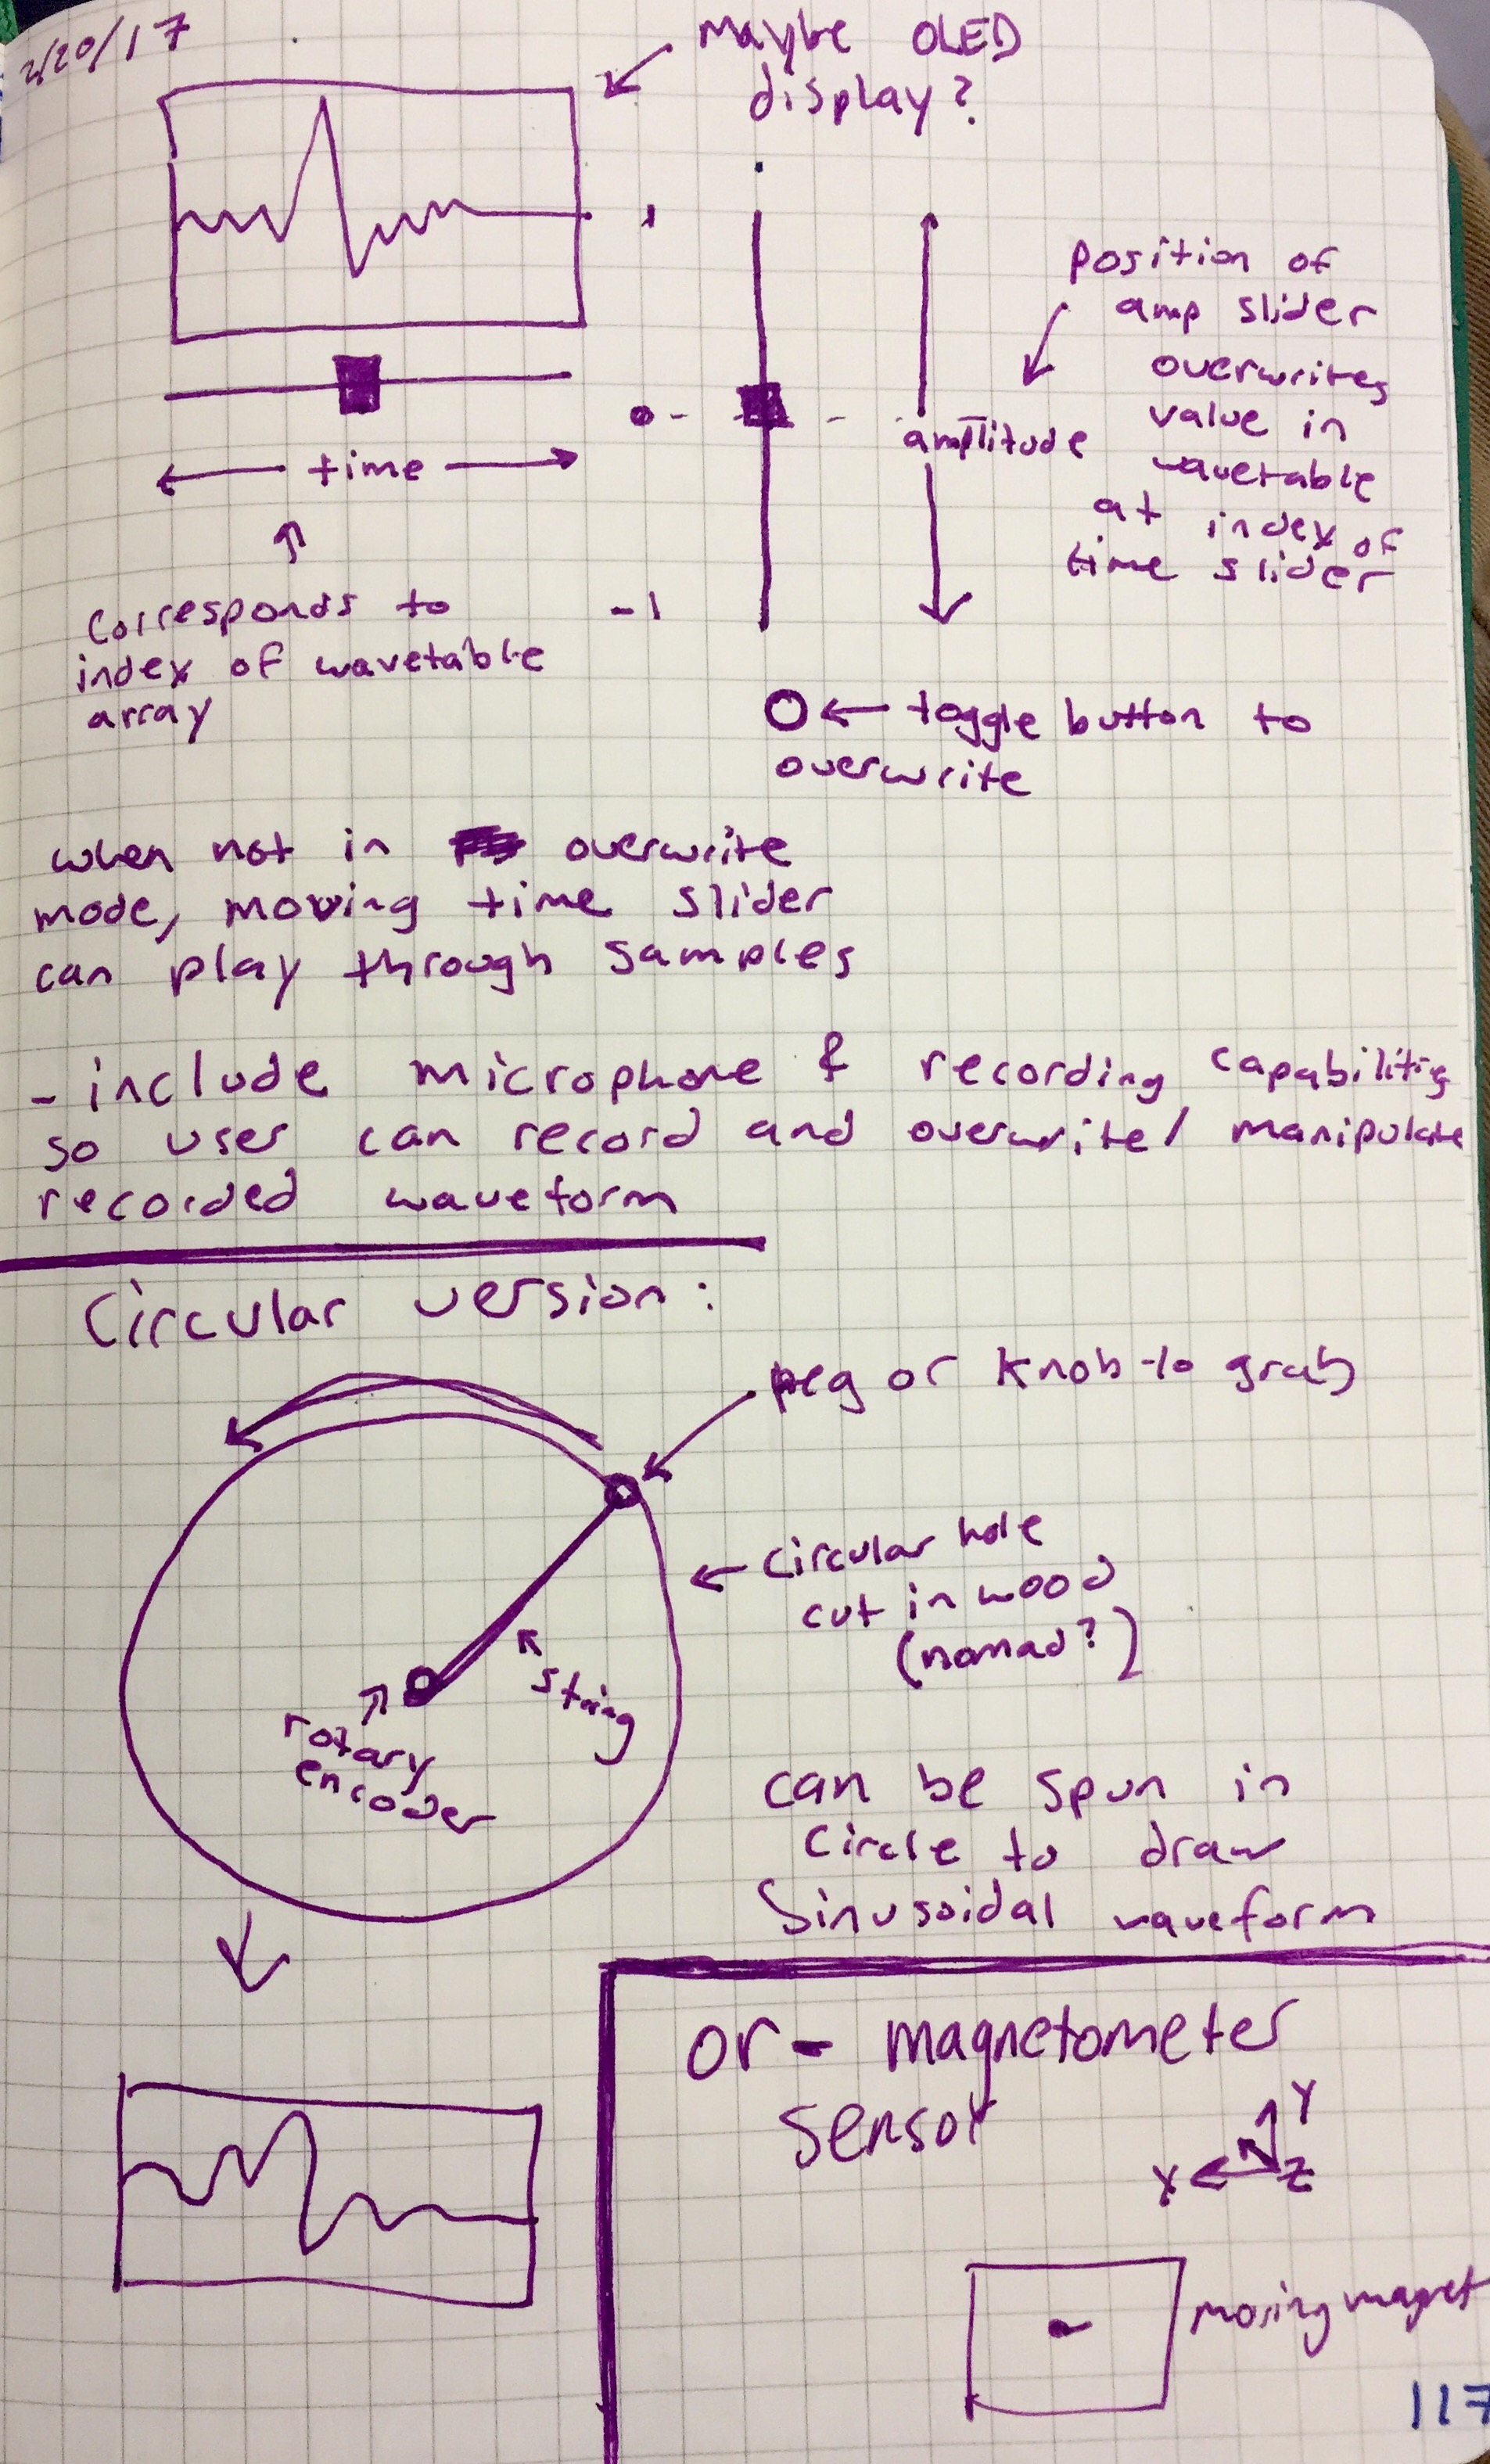 2/20/17
Maybe OLED
display?
1
position of
amp slider
overwrites
value in
wavetable
at index of
time slider
0
amplitude
time
-1
Corresponds to
index of wavetable
array
toggle button to
overwrite
when not in overwrite
mode, moving time slider
can play through samples
- include microphone & recording capabilities
so user can record and overwrite/manipulate
recorded waveform
Circular version:
peg or knob to grab
circular hole
cut in wood
(nomad?)
string
rotary
encoder
can be spun in
circle to draw
Sinusoidal waveform
or - magnetometer
sensor
Y
X
Z
moving magnet
117